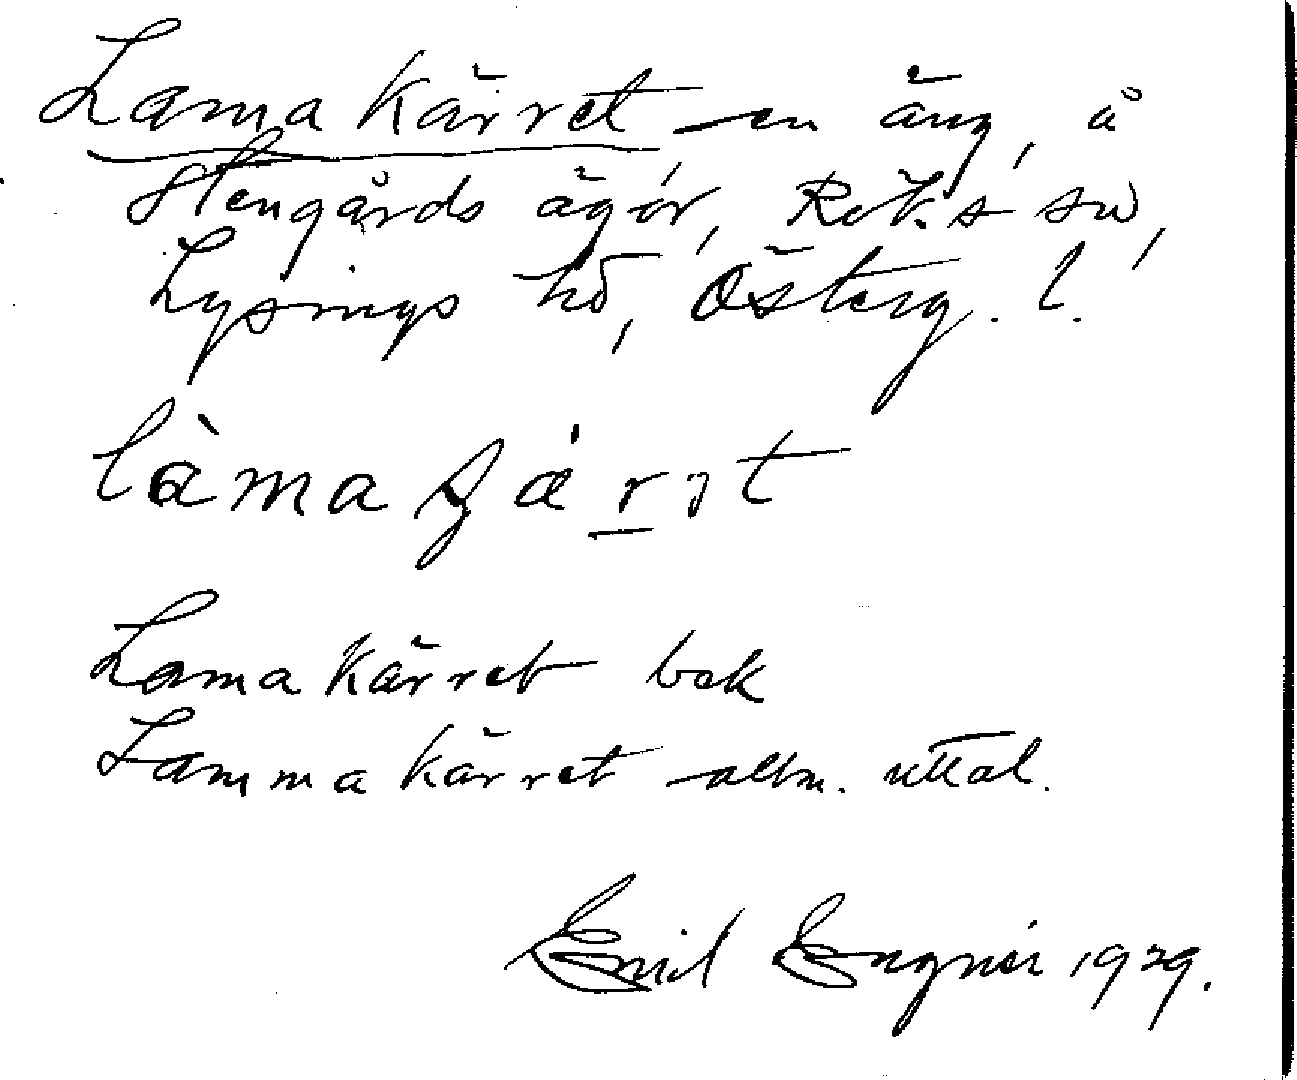 Lamakärret en äng, å
Stengårds ägor, Rök s sn,
Lysings hd, Österg. l.
Lamakärret bok
Lammakärret allm. uttal.
Emil Engnér 1929.